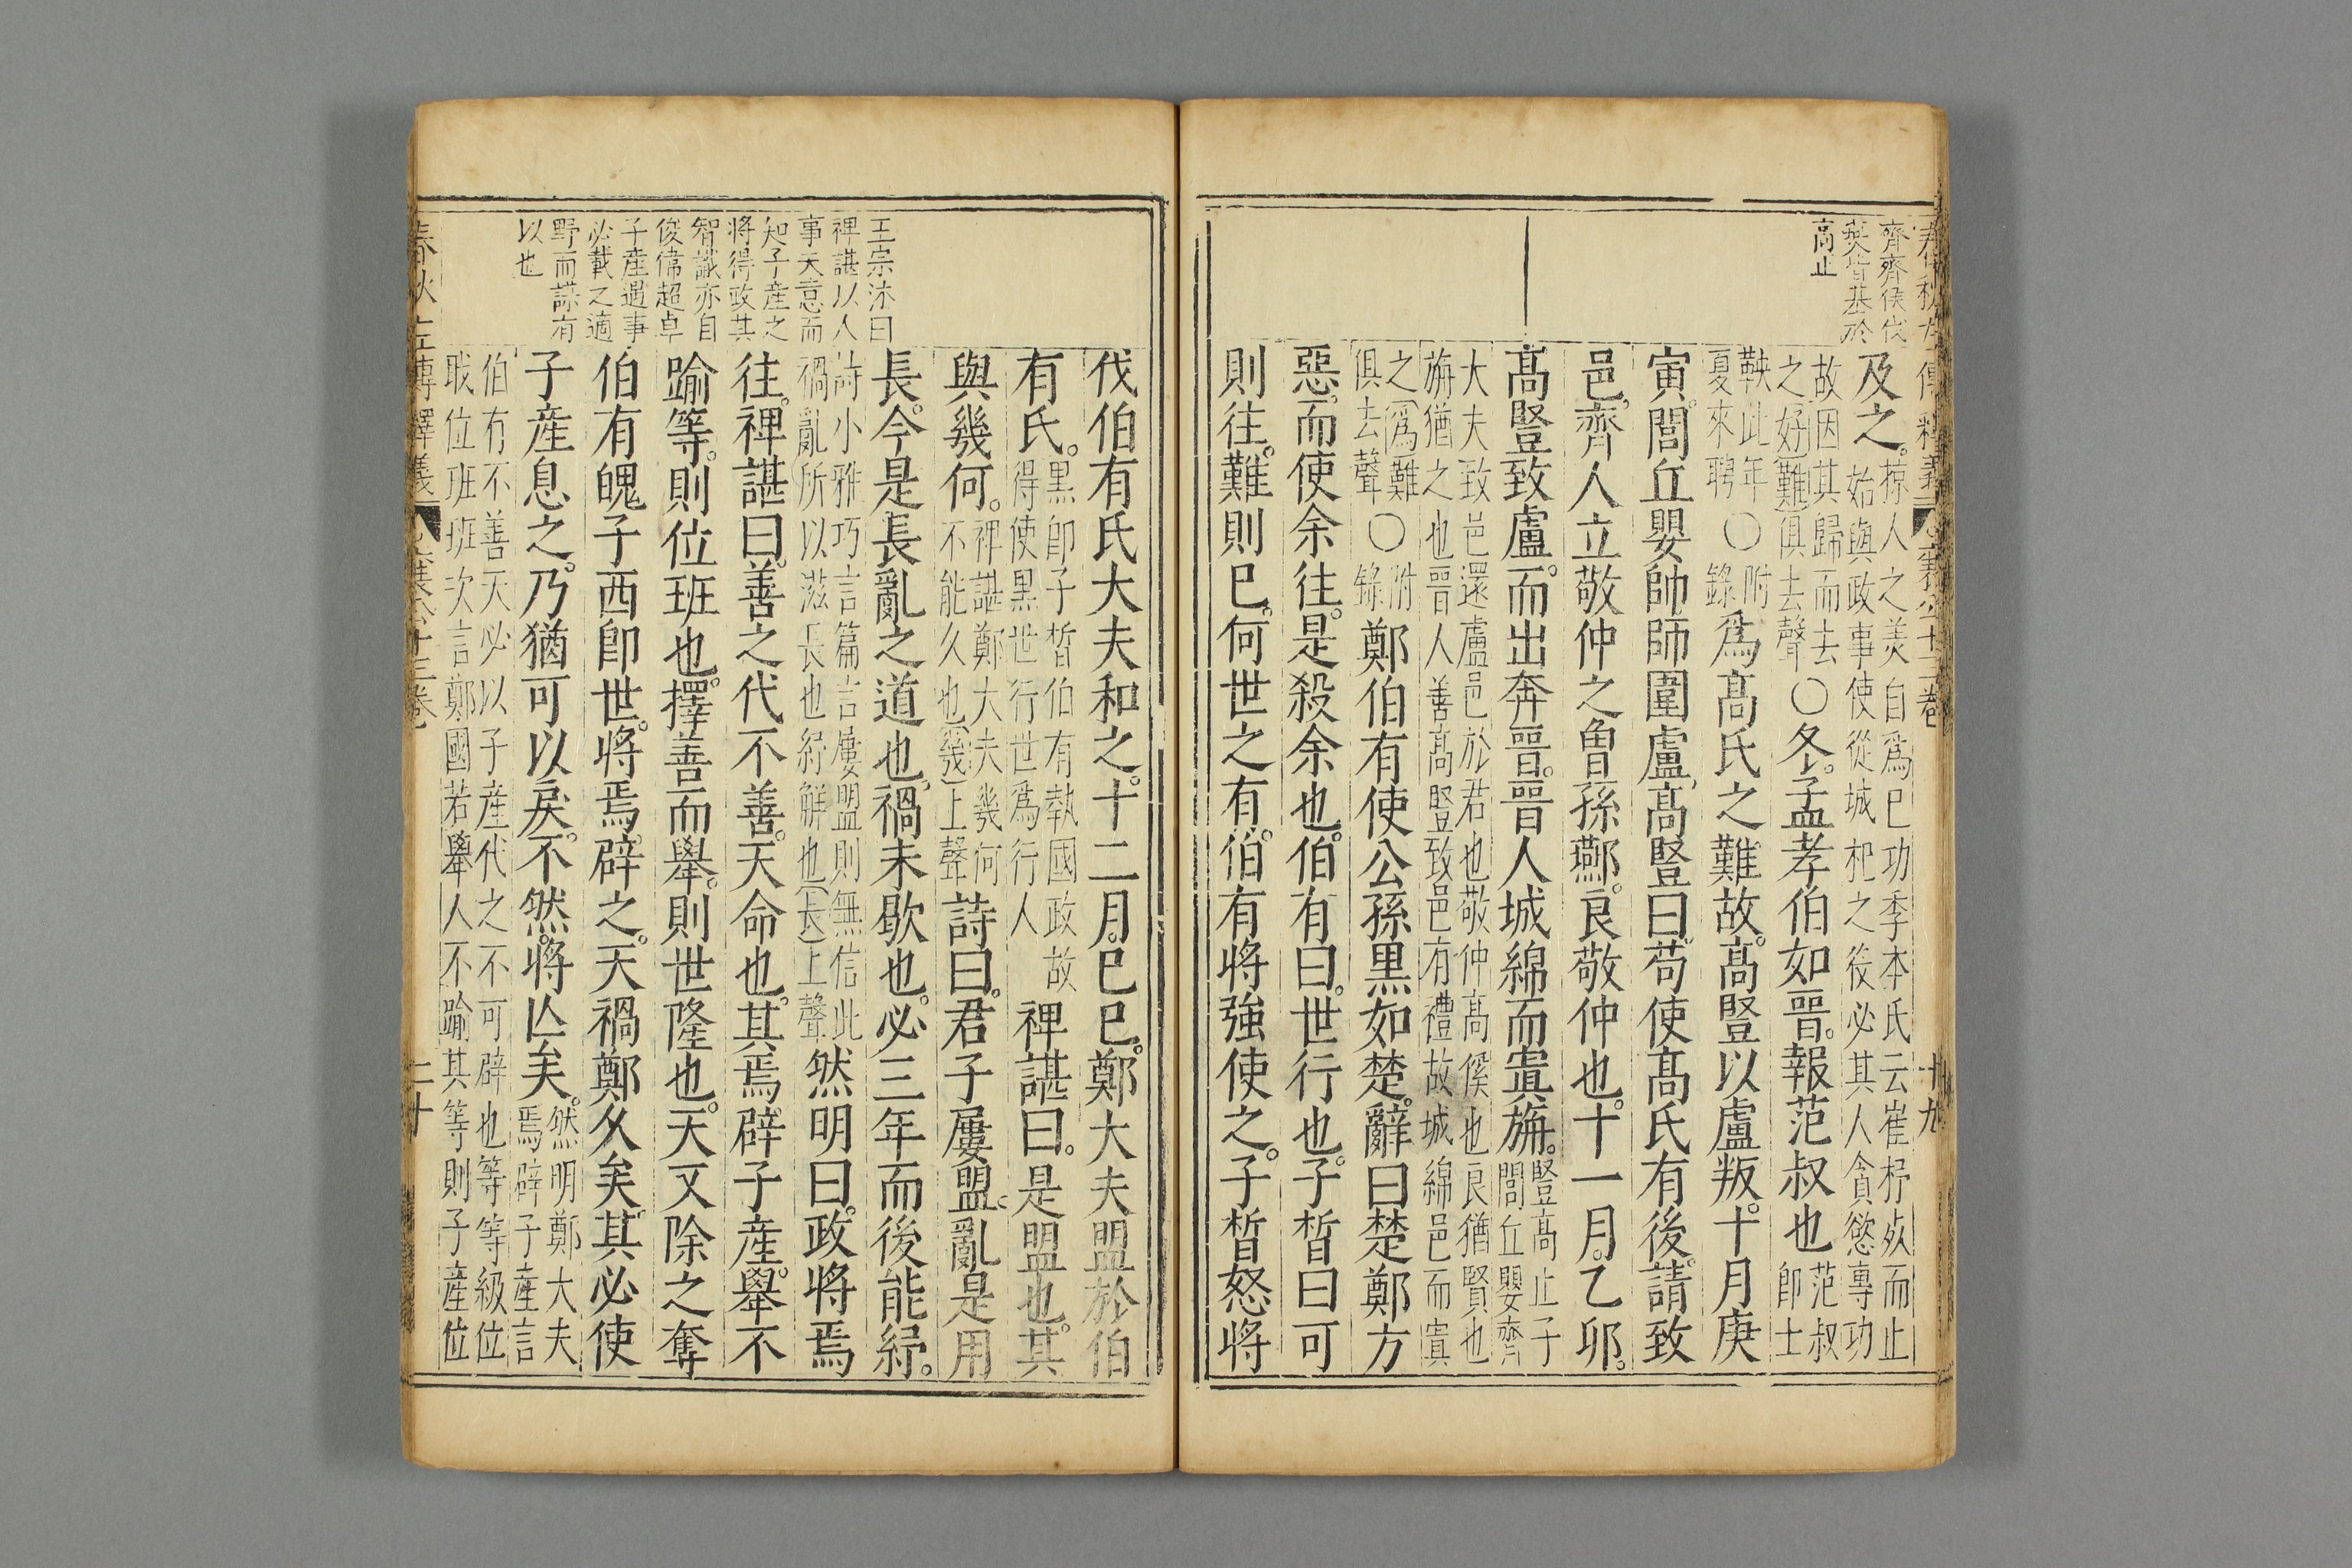 春秋左傳釋義
襄公十三卷
十九
齊齊侯伐
燕皆基於
高止
及之。掠人之美自爲巳功季本氏云崔杼歿而止
始與政事使從城杞之後必其人貪慾專功
故因其歸而去
之(好)(難)俱去聲○冬。孟孝伯如晉。報范叔也范叔
卽士
鞅此年
夏來聘○附
錄爲高氏之難故。高豎以盧叛。十月庚
寅。閭丘嬰帥師圍盧。高豎曰。苟使高氏有後。請致
邑。齊人立敬仲之曾孫酀。良敬仲也。十一月。乙卯。
高豎致盧。而出奔晉。晉人城綿而寘旃。豎高止子
閭丘嬰齊
大夫致邑還盧邑於君也敬仲高傒也良猶賢也
旃猶之也晉人善高豎致邑有禮故城綿邑而寘
之(爲)(難)
俱去聲○附
錄鄭伯有使公孫黑如楚。辭曰楚鄭方
惡。而使余往。是殺余也。伯有曰。世行也。子晳曰可
則往。難則巳。何世之有。伯有將強使之。子晳怒將
伐伯有氏大夫和之。十二月。巳巳。鄭大夫盟於伯
有氏。黑卽子晳伯有執國政故
得使黑世行世爲行人裨諶曰。是盟也。其
與幾何。裨諶鄭大夫幾何
不能久也(幾)上聲詩曰。君子屢盟。亂是用
長。今是長亂之道也。禍未歇也。必三年而後能紓。
詩小雅巧言篇言屢盟則無信此
禍亂所以滋長也紓解也(長)上聲然明曰。政將焉
往。裨諶曰。善之代不善。天命也。其焉辟子產。舉不
踰等。則位班也。擇善而舉。則世隆也。天又除之奪
伯有魄子西卽世。將焉辟之。天禍鄭久矣。其必使
子產息之。乃猶可以戾。不然。將亾矣。然明鄭大夫
焉辟子產言
伯有不善天必以子產代之不可辟也等等級位
戢位班班次言鄭國若舉人不踰其等則子產位
王宗沐曰
裨諶以人
事天意而
知子產之
將得政其
智識亦自
俊偉超卓
子產遇事
必載之適
野而謀有
以也
春秋左傳釋義
襄公十三卷
二十